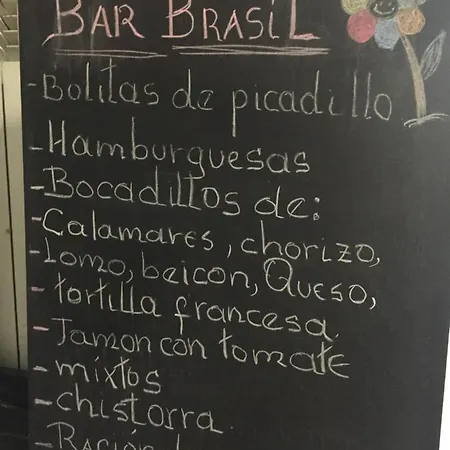 BAR BRASIL
-Bolitas de picadillo
-Hamburguesas
-Bocadillos de:
-Calamares, chorizo,
-Lomo, beicon, Queso,
-tortilla francesa
-Jamon con tomate
-mixtos
-chistorra.
-Ración